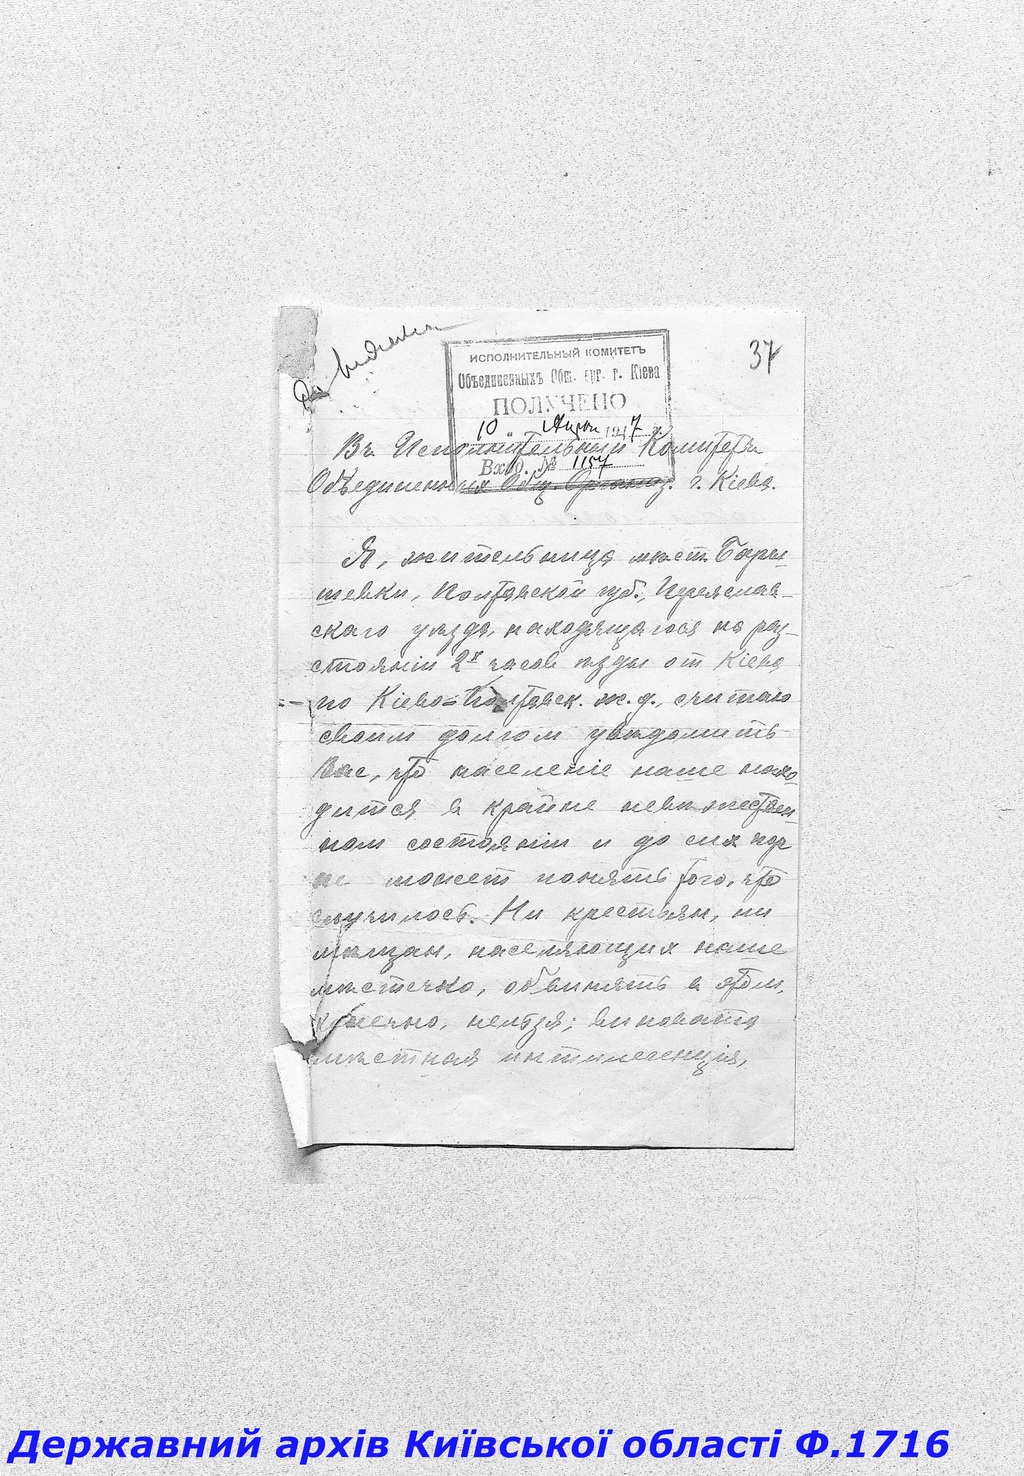 37
ИСПОЛНИТЕЛЬНЫЙ КОМИТЕТЪ
Объединенныхъ Общ. орг. г. Кіева
ПОЛУЧЕНО
10 Апрѣл 1917 г.
Вход. № 1157
Въ Исполнительный Комитетъ
Объединенныхъ Общ. Организ. г. Кіева.
Я, жительница мѣст. Бары-
шевки, Полтавской губ., Переяслав-
скаго уѣзда, находящагося на раз-
стояніи 2х часов ѣзды от Кіева
по Кіево=Полтавск. ж. д., считаю
своим долгом увѣдомить
Вас, что населеніе наше нахо-
дится в крайне невѣжествен-
ном состояніи и до сих пор
не может понять того, что
случилось. Ни крестьян, ни
мѣщан, населяющих наше
мѣстечко, обвинять в этом,
конечно, нельзя; виновата
мѣстная интилегенція,
Державний архів Київської області Ф.1716